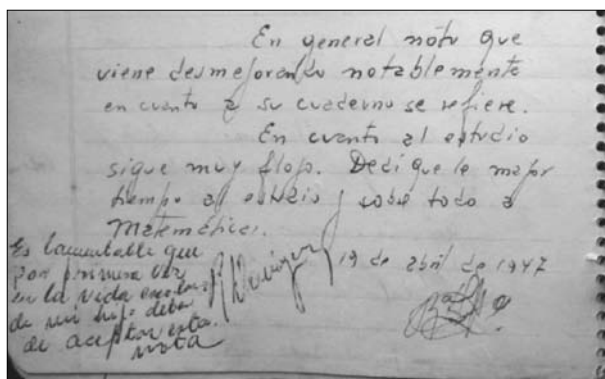 En general noto que
viene desmejorando notablemente
en cuanto a su cuaderno se refiere.
En cuanto al estudio
sigue muy flojo. Dedíquele mayor
tiempo al estudio y sobre todo a
Matemáticas.
19 de abril de 1947
Es lamentable que
por primera vez
en la vida escolar
de mi hijo deba
de aceptar esta
nota